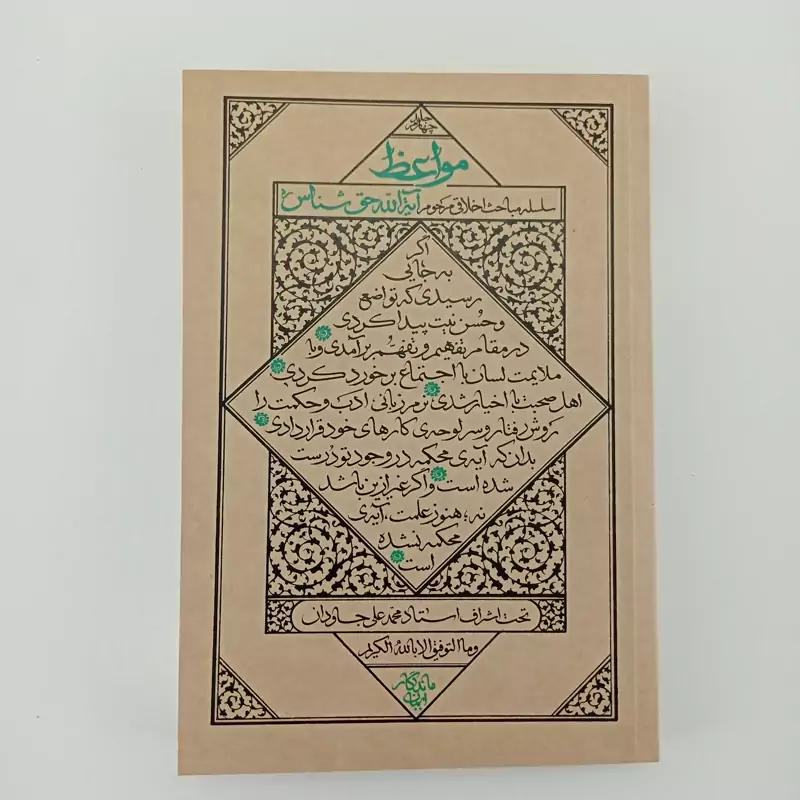 جلد چهارم
مواعظ
سلسله مباحث اخلاقی مرحوم آیة الله حق شناس ره
اگر
به جایی
رسیدی که تواضع
و حُسن نیت پیدا کردی
در مقام تفهیم و تفهّم برآمدی و با
ملایمت لسان با اجتماع برخورد کردی
اهل صحبت با اخیار شدی نرم زبانی ادب و حکمت را
روش رفتار و سرلوحه‌ی کارهای خود قرار دادی
بدان که آیه‌ی محکمه در وجود تو درست
شده است و اگر غیر از این باشد
نه؛ هنوز علمت، آیه‌ی
محکمه نشده
است
تحت اشراف استاد محمد علی جاودان
و ما التوفیق الا بالله الکریم
ماندگار